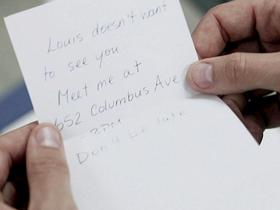 Louis doesn't want
to see you
Meet me at
652 Columbus Ave
2PM
Don't be late